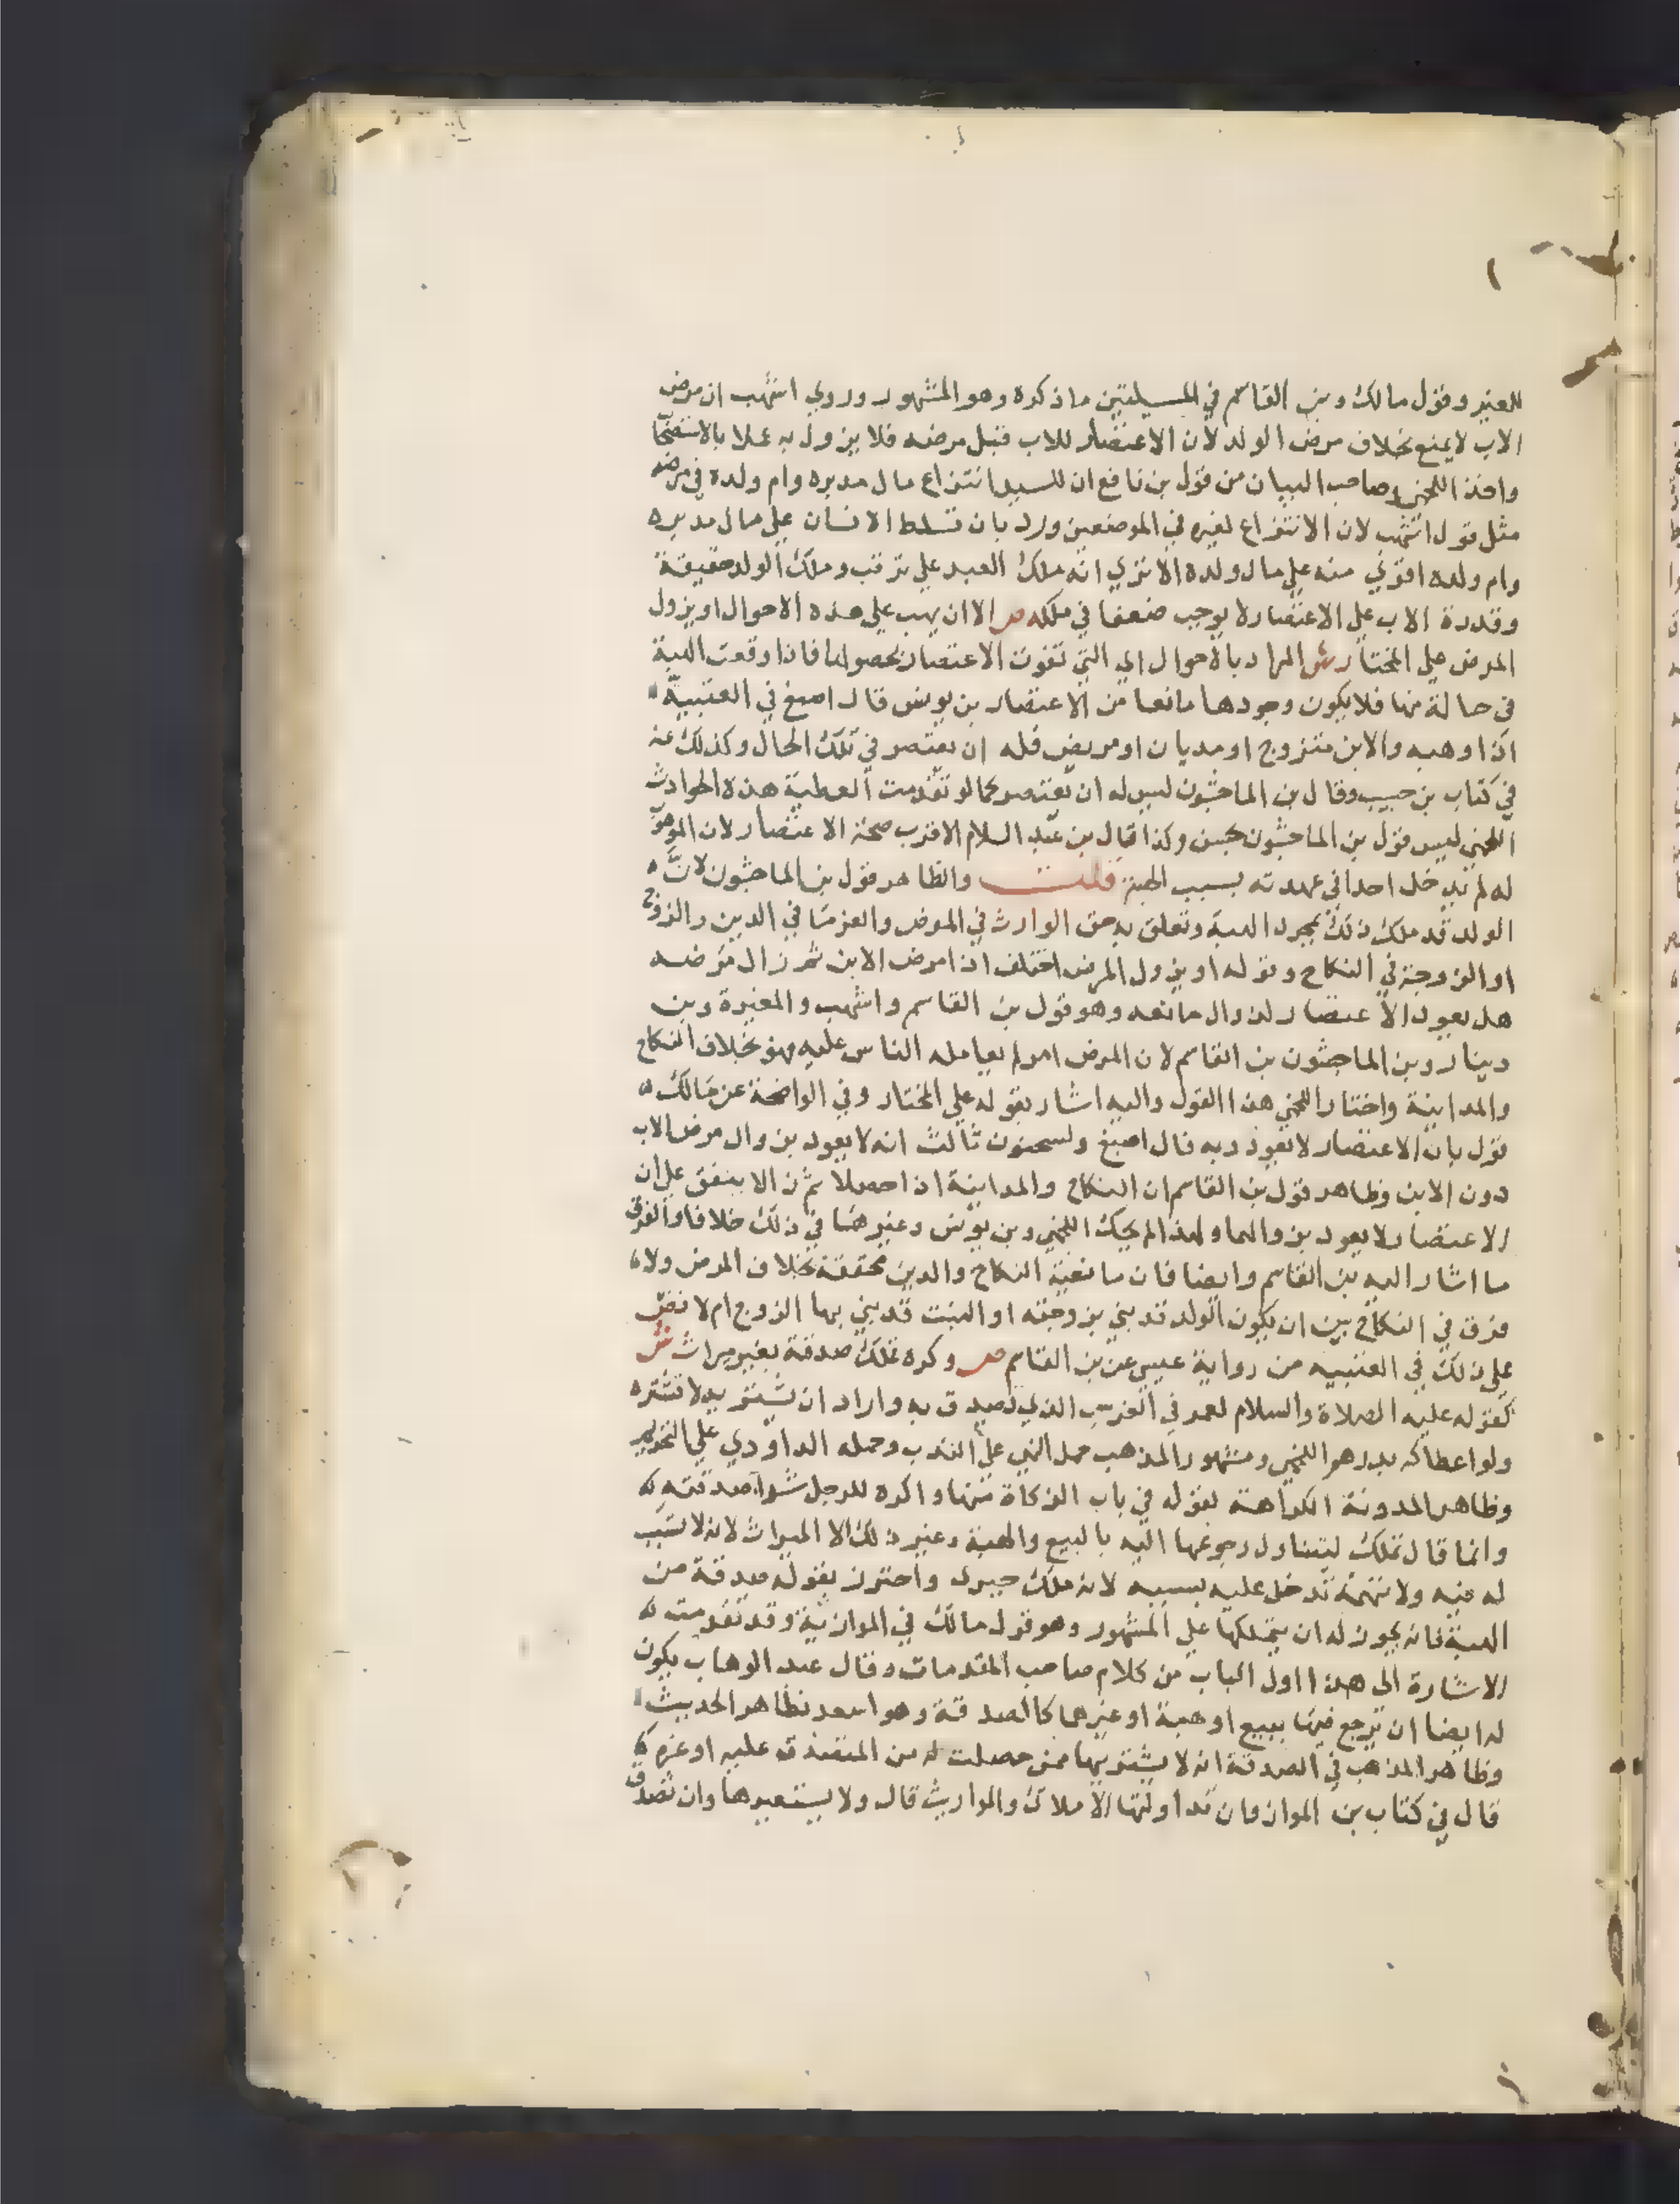 للغير وقول مالك وبن القاسم في المسيلتين ما ذكره وهو المشهور وروي اشهب ان مرض
الاب لا يمنع بخلاف مرض الولد لان الاعتصار للاب قبل مرضه فلا يزول به عملا بالاستصحا
واخذ اللخمي وصاحب البيان من قول بن نافع ان للسيد انتزاع مال مدبره وام ولده في مرضه
مثل قول اشهب لان الانتزاع لغيره في الموضعين ورد بان تسلط الانسان علي مال مدبره
وام ولده اقوي منه علي مال ولده الا تري انه ملك العبد علي ترقب وملك الولد حقيقة
وقدرة الاب علي الاعتصار لا يوجب ضعفا في ملكه ص الا ان يهب علي هذه الاحوال او يزول
المرض علي المختار ش المراد بالاحوال اي التي تفوت الاعتصار بحصولها فاذا وقعت الهبة
في حالة منها فلا يكون وجودها مانعا من الاعتصار بن يونس قال اصبغ في العتبية
اذا وهبه والابن متزوج او مديان او مريض فله ان يعتصر في تلك الحال وكذلك عنه
في كتاب بن حبيب وقال بن الماجشون ليس له ان يعتصر كما لو تقدمت العطية هذه الحوادث
اللخمي ليس قول بن الماجشون بحسن وكذا قال بن عبد السلام الاقرب صحة الاعتصار لان الموهو
له لم يدخل احدا في عهدته بسبب الهبة قلت والظاهر قول بن الماجشون لان
الولد قد ملك ذلك بمجرد الهبة وتعلق به حق الوارث في المرض والغرما في الدين والزوج
او الزوجة في النكاح وقوله او يزول المرض اختلف اذا مرض الابن ثم زال مرضه
هل يعود الاعتصار لزوال مانعه وهو قول بن القاسم واشهب والمغيرة وبن
دينار وبن الماجشون بن القاسم لان المرض امر لم يعامله الناس عليه فهو بخلاف النكاح
والمداينة واختار اللخمي هذا القول واليه اشار بقوله علي المختار وفي الواضحة عن مالك
قول بان الاعتصار لا يعود وبه قال اصبغ ولسحنون ثالث انه لا يعود بزوال مرض الاب
دون الابن وظاهر قول بن القاسم ان النكاح والمداينة اذا حصلا ثم زالا يتفق علي ان
الاعتصار لا يعود بزوالهما ولهذا لم يحك اللخمي وبن يونس وغيرهما في ذلك خلافا والفرق
ما اشار اليه بن القاسم وايضا فان مانعية النكاح والدين محققة بخلاف المرض ولا
فرق في النكاح بين ان يكون الولد قد بني بزوجته او البنت قد بني بها الزوج ام لا نص
علي ذلك في العتبيه من رواية عيسي عن بن القاسم ص وكره تملك صدقة بغير ميراث ش
كقوله عليه الصلاة والسلام لعمر في الفرس الذي تصدق به واراد ان يشتريه لا تشتره
ولو اعطاكه بدرهم اللخمي ومشهور المذهب حمل النهي علي الندب وحمله الداودي علي التحريم
وظاهر المدونة الكراهة لقوله في باب الزكاة منها واكره للرجل شراء صدقته
وانما قال تملك ليتناول رجوعها اليه بالبيع والهبة وغير ذلك الا الميراث لانه لا تسبب
له فيه ولا تهمة تدخل عليه بسببه لانه ملك جبري واحترز بقوله صدقة من
الهبة فانه يجوز له ان يتملكها علي المشهور وهو قول مالك في الموازية وقد تقدمت
الاشارة الى هذا اول الباب من كلام صاحب المقدمات وقال عبد الوهاب يكون
له ايضا ان يرجع فيها ببيع او هبة او غيرهما كالصدقة وهو اسعد بظاهر الحديث
وظاهر المذهب في الصدقة انه لا يشتريها ممن حصلت له من المتصدق عليه او غيره
قال في كتاب بن المواز وان تداولتها الاملاك والمواريث قال ولا يستعيرها وان تصدق